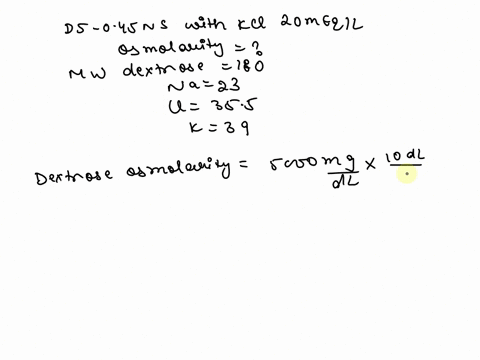 D5-0.45NS with KCl 20mEq/L
osmolarity = ?
MW dextrose = 180
Na = 23
Cl = 35.5
K = 39
Dextrose osmolarity = 5000 mg/dL × 10 dL/